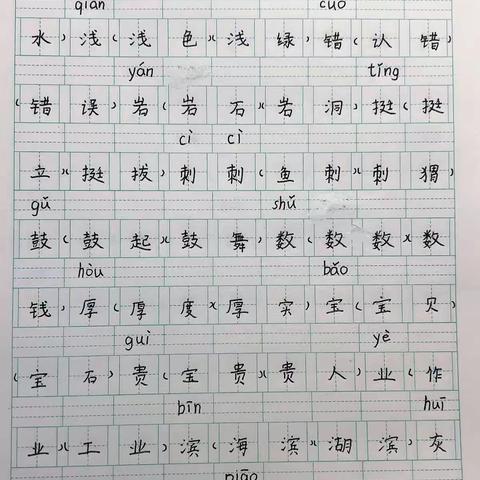 qiǎn cuò
水)浅(浅色)(浅绿)错(认错)
yán tǐng
(错误)岩(岩石)(岩洞)挺(挺
cì cì
立)(挺拔)刺刺(鱼刺)(刺猬)
gǔ shǔ
鼓(鼓起)(鼓舞)数(数数)(数
hòu bǎo
钱)厚(厚度)(厚实)宝(宝贝)
guì yè
(宝石)贵(宝贵)(贵人)业(作
bīn huī
业)(工业)滨(海滨)(湖滨)灰
piāo